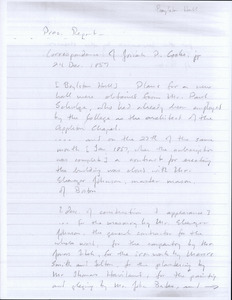 Boylston Hall
Pres. Report
Correspondence of Josiah P. Cooke, Jr
24 Dec 1857
[Boylston Hall] Plans for a new
hall were obtained from Mr. Paul
Schulze, who had already been employed
by the College as the architect of the
Appleton Chapel.
and on the 27th of the same
month [Jan 1857], when the subscription
was completed a contract for erecting
the building was closed with Mr.
Ebenezer Johnson, master mason
of Boston
[Doc. of construction & appearance]
for the masonry by Mr. Ebenezer
Johnson, the general contractor for the
whole work, for the carpentry by Mr.
Jonas Fitch, for the iron work by Messrs
Smith and Felton, for the plumbing by
Mr. Thomas Haviland, for the painting
and glazing by Mr. John Bates, and